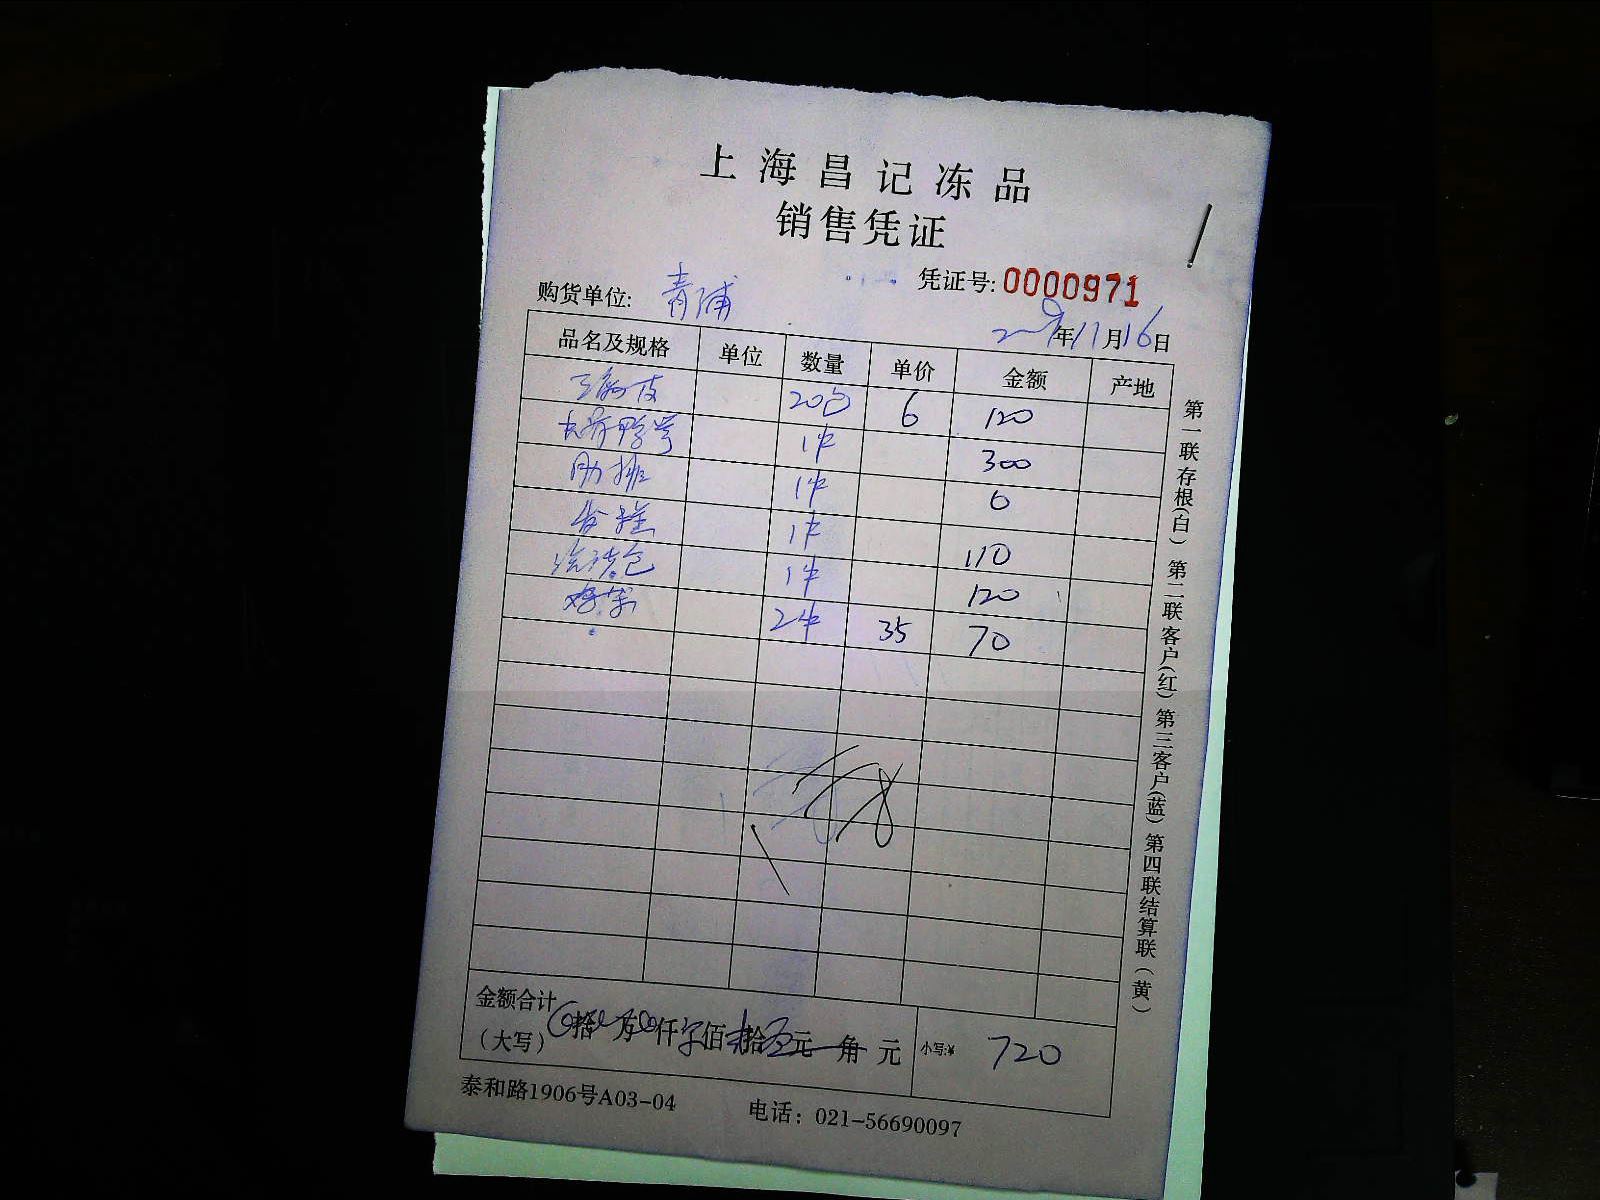 上海昌记冻品
销售凭证
凭证号: 0000971
购货单位: 青浦
年11月16日
品名及规格 单位 数量 单价 金额 产地
20包 6 120
1件 300
肋排 1件 0
1件 110
1件 120
2件 35 70
金额合计
(大写) 拾 万 仟 佰 拾 元 角 元 小写:¥ 720
泰和路1906号A03-04 电话: 021-56690097
第一联存根(白) 第二联客户(红) 第三客户(蓝) 第四联结算联(黄)